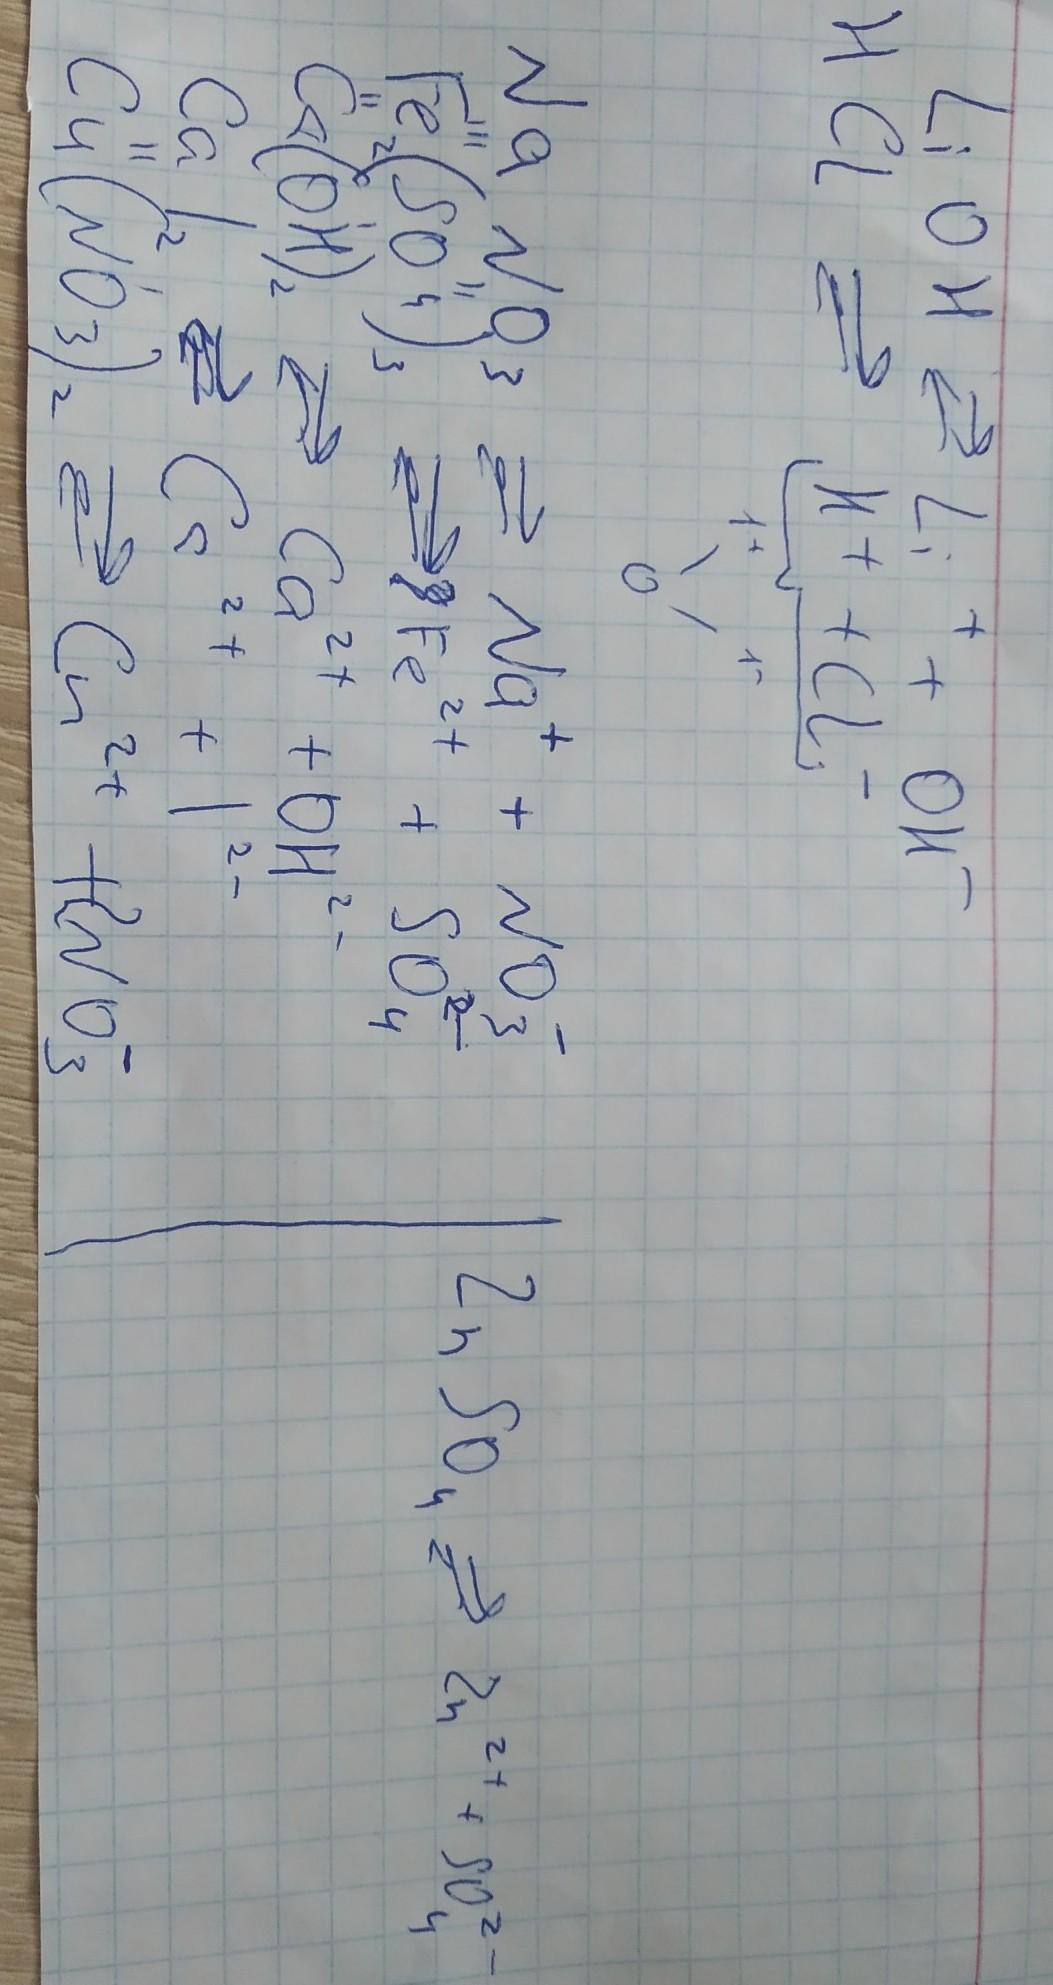 LiOH ⇄ Li⁺ + OH⁻
HCl ⇄ H⁺ + Cl⁻
1+ 1-
0
NaNO₃ ⇄ Na⁺ + NO₃⁻
Fe₂(SO₄)₃ ⇄ Fe²⁺ + SO₄²⁻
Ca(OH)₂ ⇄ Ca²⁺ + OH²⁻
CaI₂ ⇄ Ca²⁺ + I²⁻
Cu(NO₃)₂ ⇄ Cu²⁺ + NO₃⁻
ZnSO₄ ⇄ Zn²⁺ + SO₄²⁻